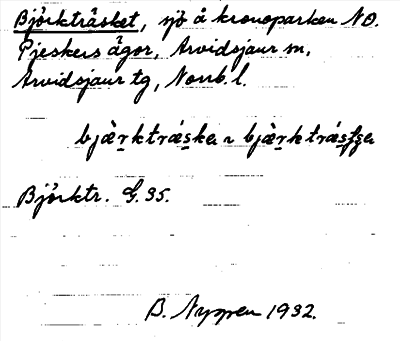 Björkträsket, sjö å kronoparken NO.
Pjeskers ägor, Arvidsjaur sn,
Arvidsjaur tg, Norrb. l.
bjæ̀rktrásker ~ bjæ̀rktrástser
Björktr. G. 35.
B. Nygren 1932.